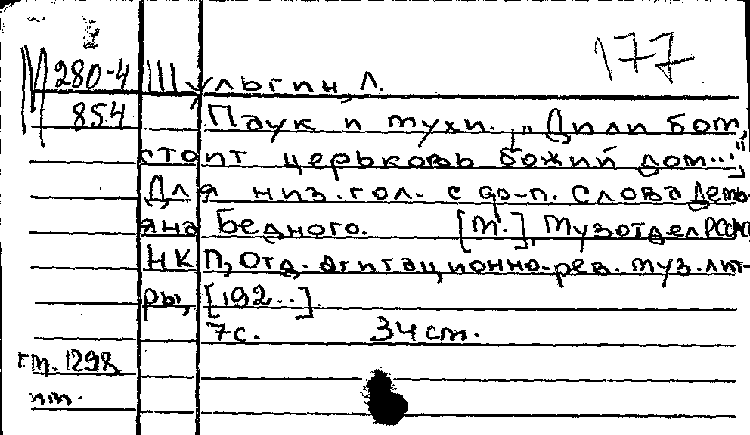 177
М 280-4 Шульгин, Л.
854 Паук и мухи. „Дили бом,
стоит церьковь божий дом..."
Для низ. гол. с ф-п. Слова Демь-
яна Бедного. [М.], Музотдел РСФСР
НКП, Отд. агитационно-рев. муз. лит-
ры, [192..].
7 с. 34 ст.
гт. 1298
пт.